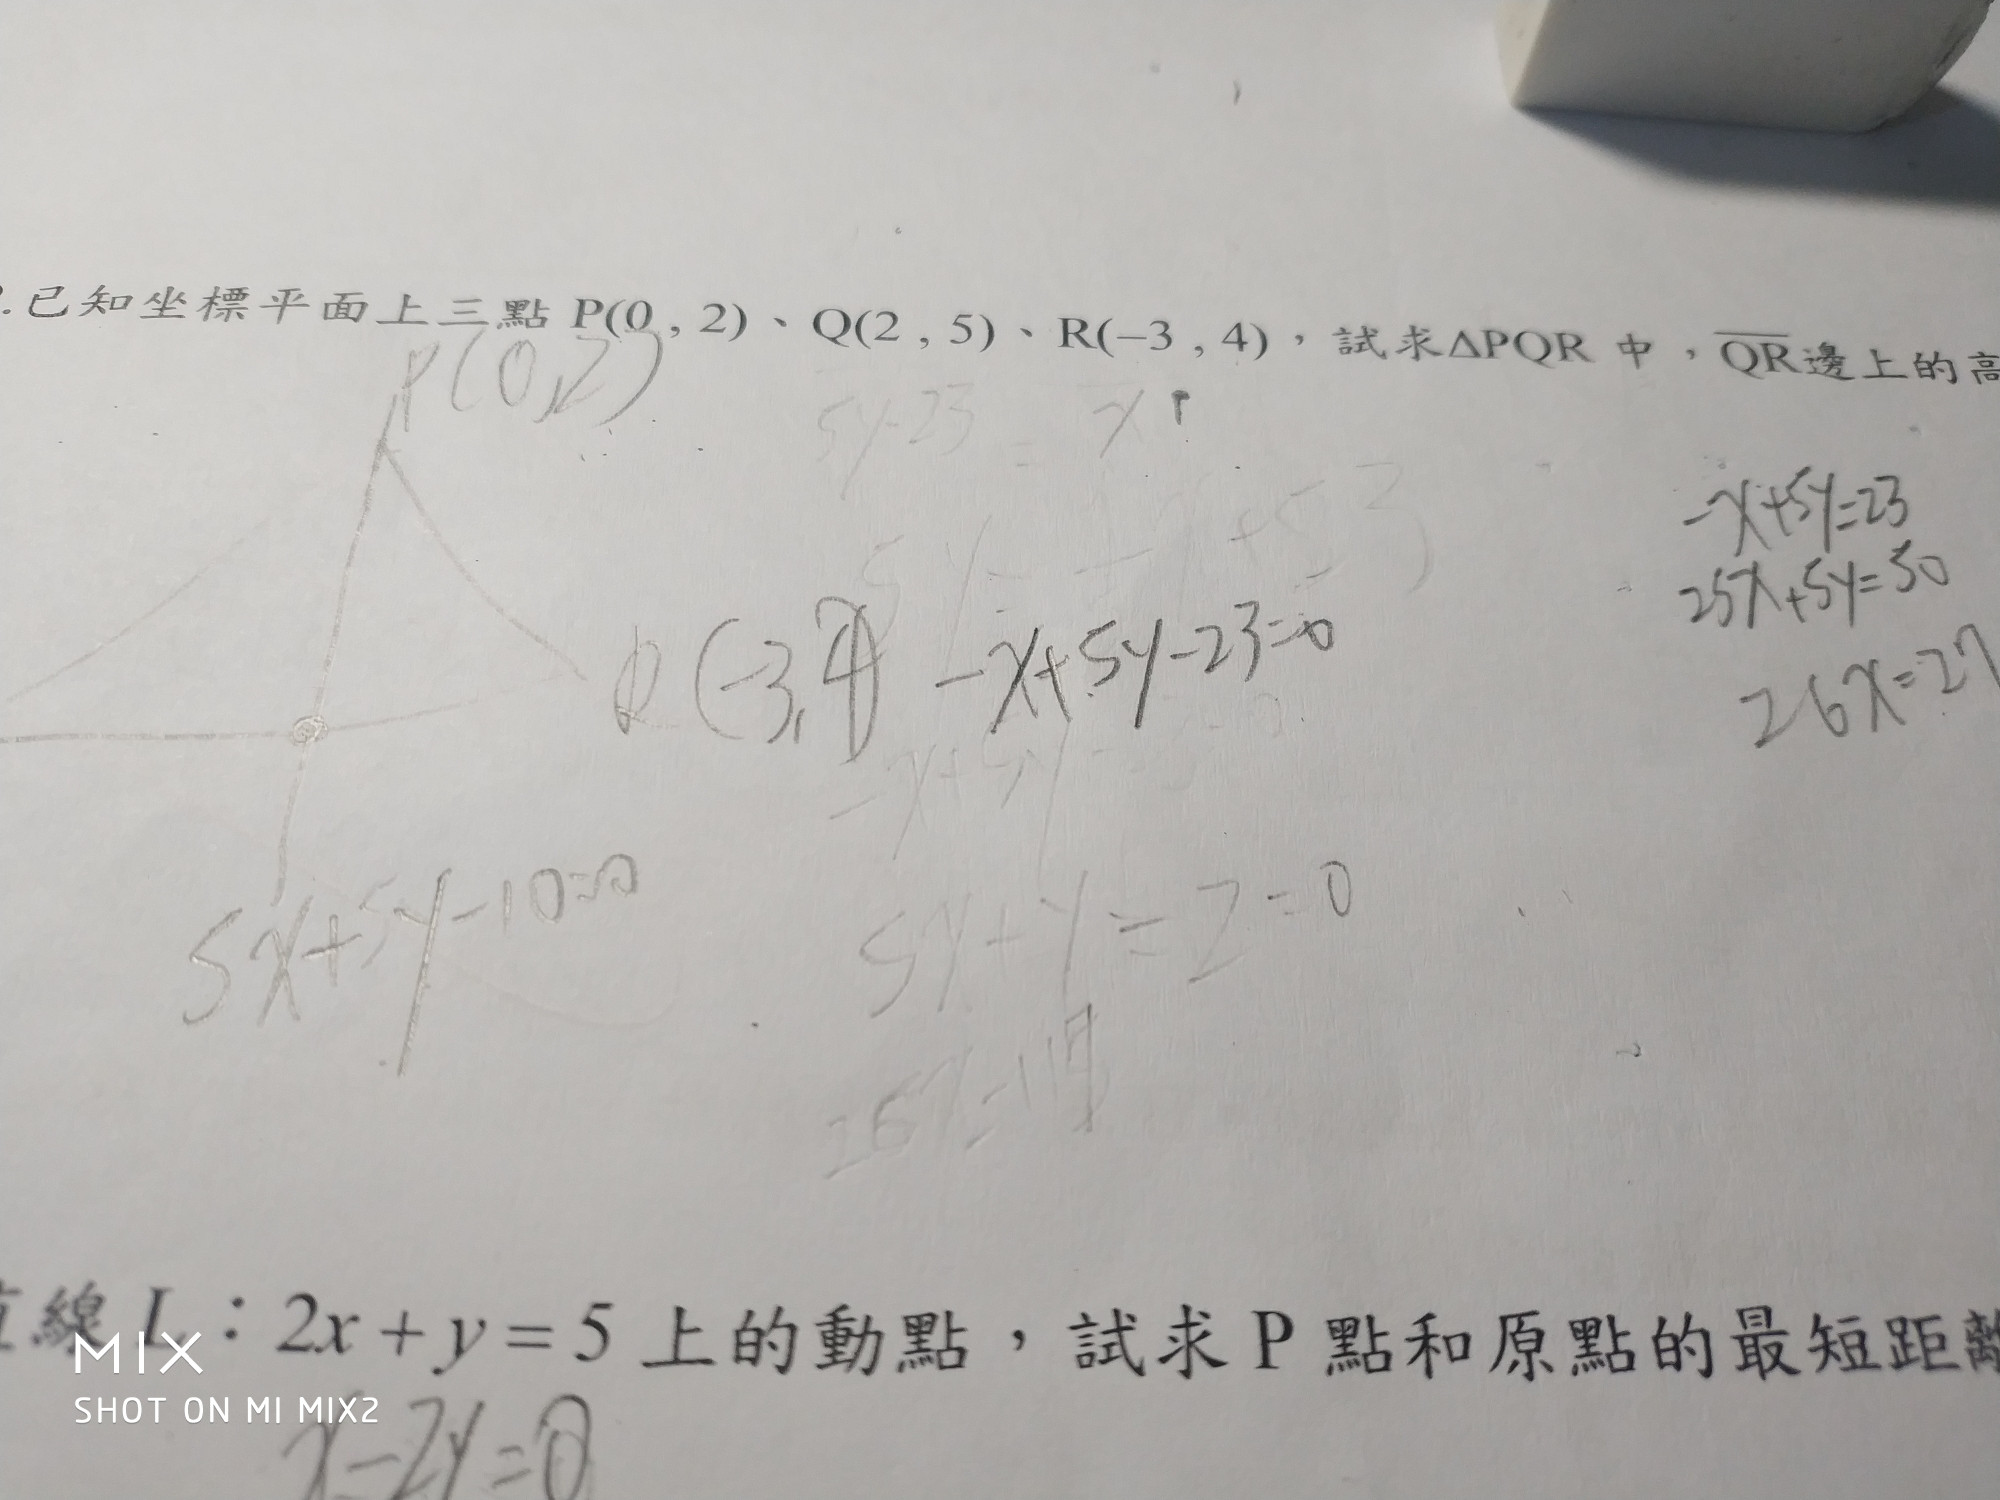 .已知坐標平面上三點 P(0 , 2)、Q(2 , 5)、R(−3 , 4)，試求ΔPQR 中，QR邊上的高
P(0,2)
5y-23 = x
-x+5y=23
25x+5y=50
26x=27
R(-3,4) -x+5y-23=0
5x+5y-10=0
線 L：2x + y = 5 上的動點，試求 P 點和原點的最短距離
MIX
SHOT ON MI MIX2
x-2y=0